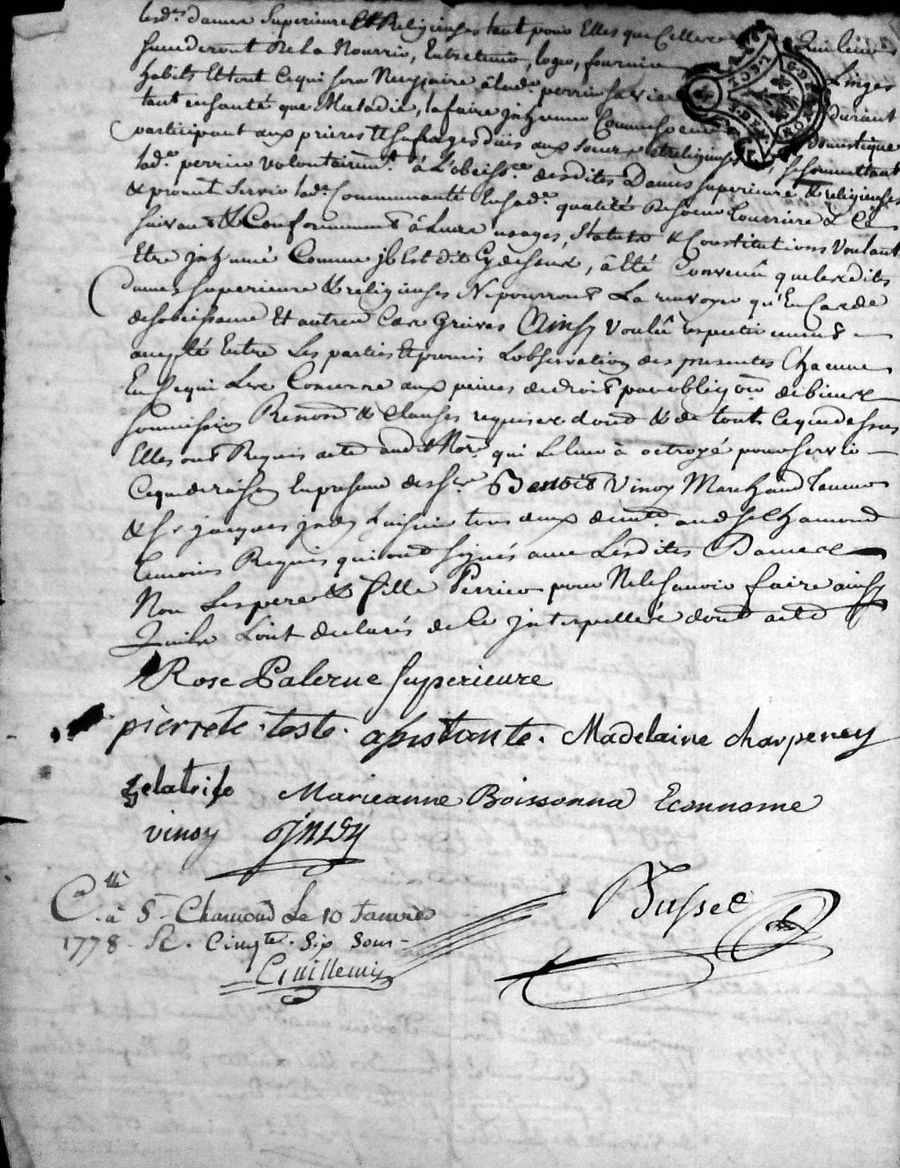 lesd.es dames Superieure Et Religieuses tant pour Elles que Celles qui leurs
succederont de la Nourrir, Entretenir, loger, fournir Linges
habits Et tout Ce qui sera Necessaire à lad.e perrin sa vie durant
tant en santé que Maladie, la faire inhumer Comme soeur domestique
participant aux prieres & sufrages dûs aux soeurs & religieuses, se soumettant
lad.e perrin volontairem.t à L'obeiss.ce desdites Dames superieure & religieuses
& promet servir lad.e Communauté En sad.e qualité de soeur tourriere & Ce
suivant & Conformement à Leurs usages, statuts & Constitutions Voulant
Etre inhumé Comme il Est dit Cy dessus, à Eté Convenû que lesdites
dames superieure & religieuses Ne pourront La renvoyer qu'En Cas de
desobeissance Et autres Cas Graves Ainsy Voulû respectivement
accepté Entre Les parties & promis L'observation des presentes Chacune
En Ce qui Les Concerne aux peines de droit par oblig.on de biens
soumissions Renon.on & Clauses requises dont & de tout Ce que dessus
Elles ont Requis acte aud.t No.re qui Le leur à octroyé pour servir
Ce que de raison En presence de s.r Benoit Vinoy Marchand
& s.r jacques tous deux demt. aud. s.t Chamond
temoins Requis qui ont signés avec Lesdites Dames
Non Les pere & fille Perrin pour Ne le sçavoir faire ainsy
Qu'ils L'ont declarés de Ce interpellés dont acte
Rose Palerne superieure
pierrete teste assistante. Madelaine charpeney
zelatrise Marieanne Boissonna Econnome
vinoy
C.lé à S.t Chamond Le 10 Janvier
1778. R. Cinq.te Six Sous
Guillemin